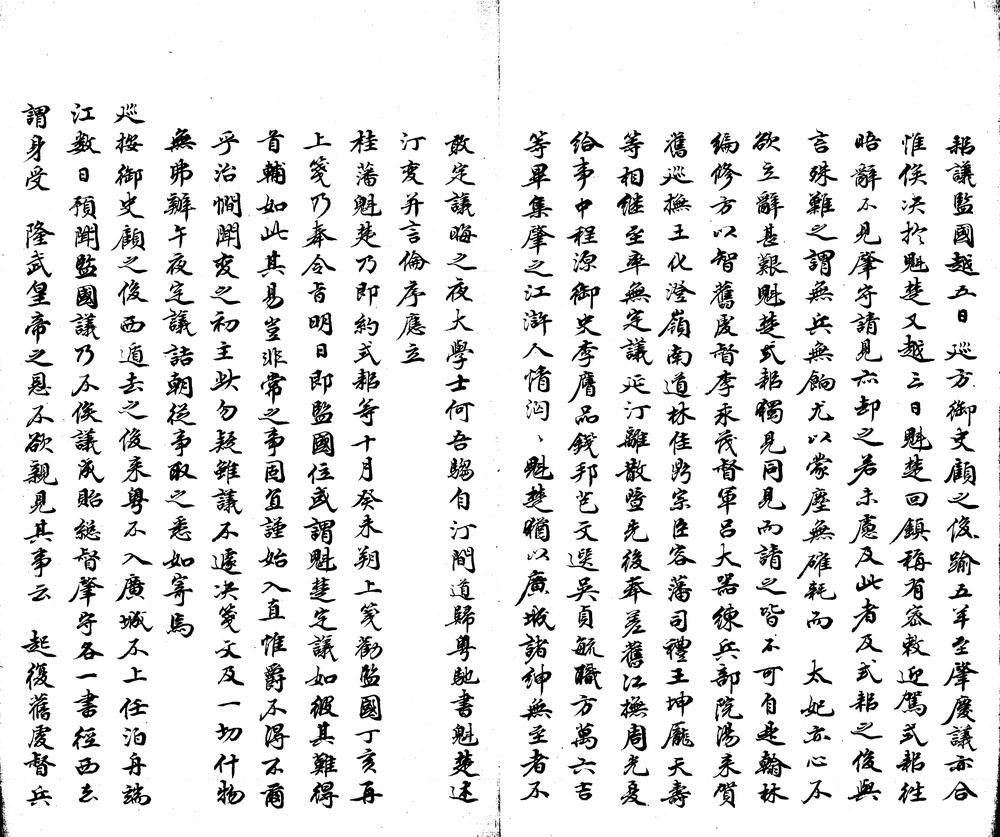 耜議監國越五日巡方御史顧之俊踰五羊至肇慶議亦合
惟俟决於魁楚又越三日魁楚回鎮稱有密敕迎駕式耜往
晤辭不見肇守請見亦却之若未慮及此者及式耜之俊與
言殊難之謂無兵無餉尤以蒙塵無確耗而 太妃亦心不
欲立辭甚艱魁楚式耜獨見同見而請之皆不可自是翰林
編修方以智舊虔督李永茂督軍呂大器練兵部院湯來賀
舊巡撫王化澄嶺南道林佳鼎宗臣容藩司禮王坤龐天壽
等相繼至率無定議延汀離散暨先後奉差舊江撫周光夏
給事中程源御史李膺品錢邦芑文選吳貞毓職方萬六吉
等畢集肇之江滸人情洶〻魁楚猶以廣城諸紳無至者不
敢定議晦之夜大學士何吾騶自汀間道歸粤馳書魁楚述
汀變并言倫序應立
桂藩魁楚乃即約式耜等十月癸未朔上箋勸監國丁亥再
上箋乃奉令旨明日即監國位或謂魁楚定議如彼其難得
首輔如此其易豈非常之事固宜謹始入直惟爵不得不爾
乎治㦖聞変之初主此勿疑雖議不遽决箋文及一切什物
無弗辦午夜定議詰朝從事取之悉如寄焉
巡按御史顧之俊西遁去之俊来粤不入廣城不上任泊舟端
江数日預聞監國議乃不俟議成貽總督肇守各一書徑西去
謂身受 隆武皇帝之恩不欲親見其事云 起復舊虔督兵